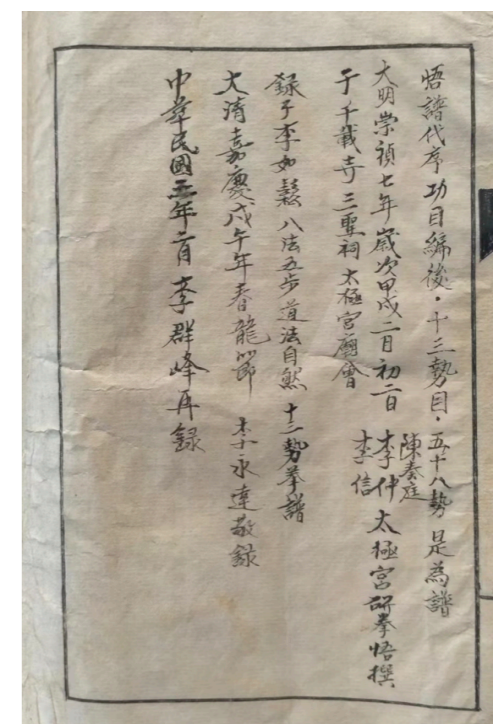 悟譜代序功目編後·十三勢目·五十八勢是為譜
大明崇禎七年歲次甲戌二月初二日 陳奏庭 李仲 李信 太極宮研拳悟撰
于千載寺三聖祠太極宮廟會
錄于李如鬆八法五步道法自然十三勢拳譜
大清嘉慶戊午年春龍節 李永達敬錄
中華民國五年二月李群峰再錄